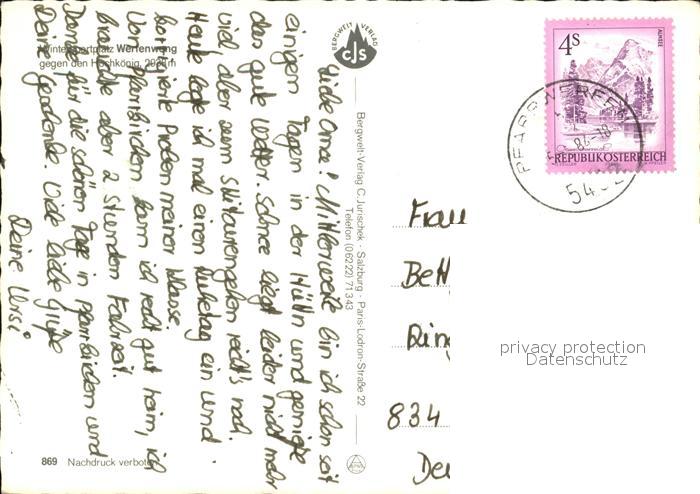 Wintersportplatz Werfenweng
gegen den Hochkönig, 2938 m
Liebe Oma! Mittlerweile bin ich schon seit
einigen Tagen in der Hütt'n und genieße
das gute Wetter. Schnee liegt leider nicht mehr
viel aber zum Skitourengehen reicht's noch.
Heute lege ich mal einen Ruhetag ein und
korrigiere Proben meiner Klasse.
Von Pfarrkirchen kann ich recht gut heim, ich
brauche aber 2 Stunden Fahrzeit.
Danke für die schönen Tage in Pfarrkirchen und
Deine Geschenke. Viele liebe Grüße
Deine Ursi
BERGWELT VERLAG
CJS
Bergwelt-Verlag C. Jurischek - Salzburg - Paris-Lodron-Straße 22
Telefon (06222) 71343
869 Nachdruck verboten
4S
ALMSEE
REPUBLIK ÖSTERREICH
PFARRWERFEN
86-18
Frau
Bett
Ring
834
privacy protection
Datenschutz